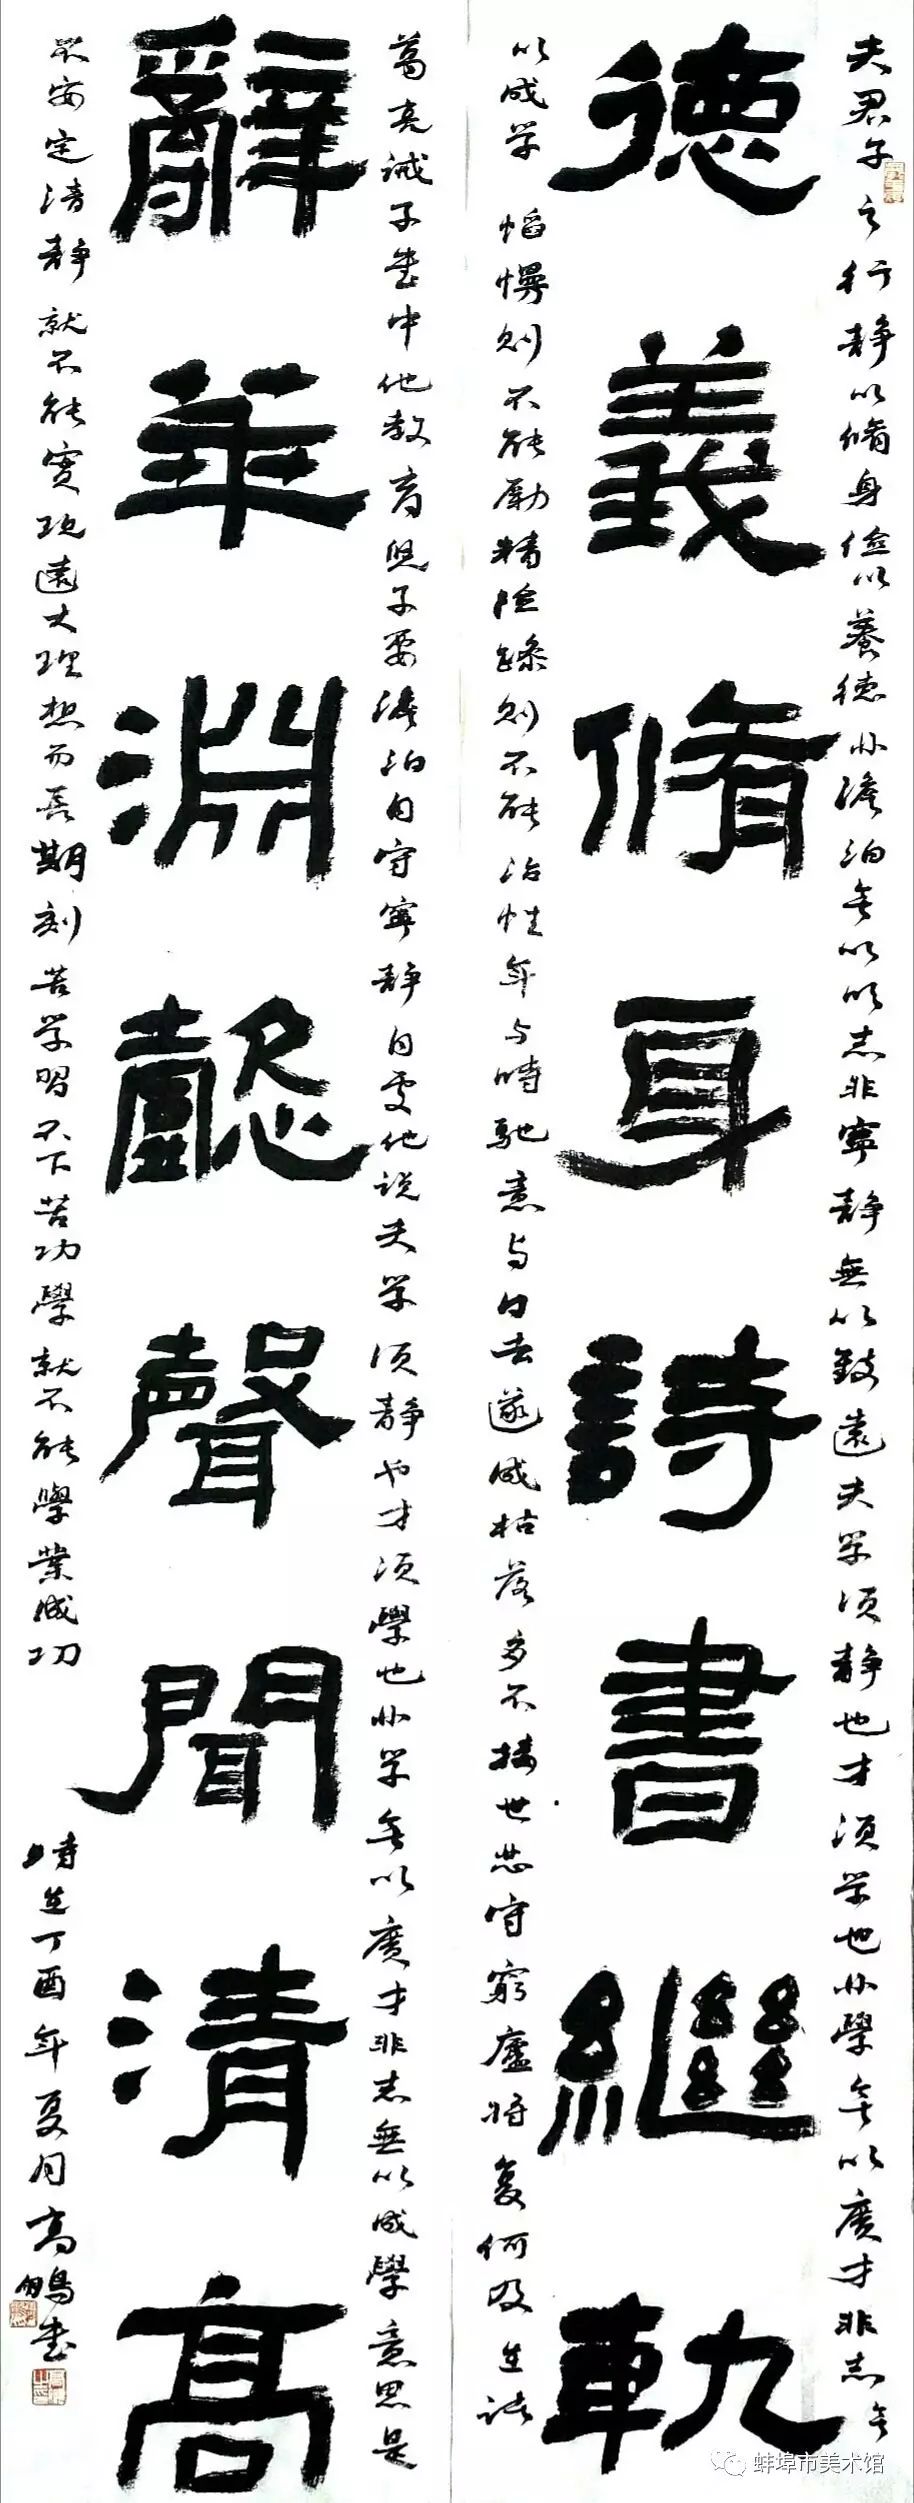 夫君子之行静以脩身俭以養德非澹泊无以明志非寧静無以致遠夫学须静也才须学也非學无以廣才非志无
德義脩身詩書繼軌
以成学慆慢则不能励精险躁则不能治性年与時馳意与日去遂成枯落多不接世悲守窮廬将复何及在诸
葛亮诫子書中他教育児子要澹泊自守寧静自处他说夫学须静也才须學也非学无以廣才非志無以成學意思是
辭華淵懿聲聞清高
不安定清静就不能實现遠大理想而長期刻苦学習不下苦功學就不能學業成功
時在丁酉年夏月高鹏書
蚌埠市美术馆